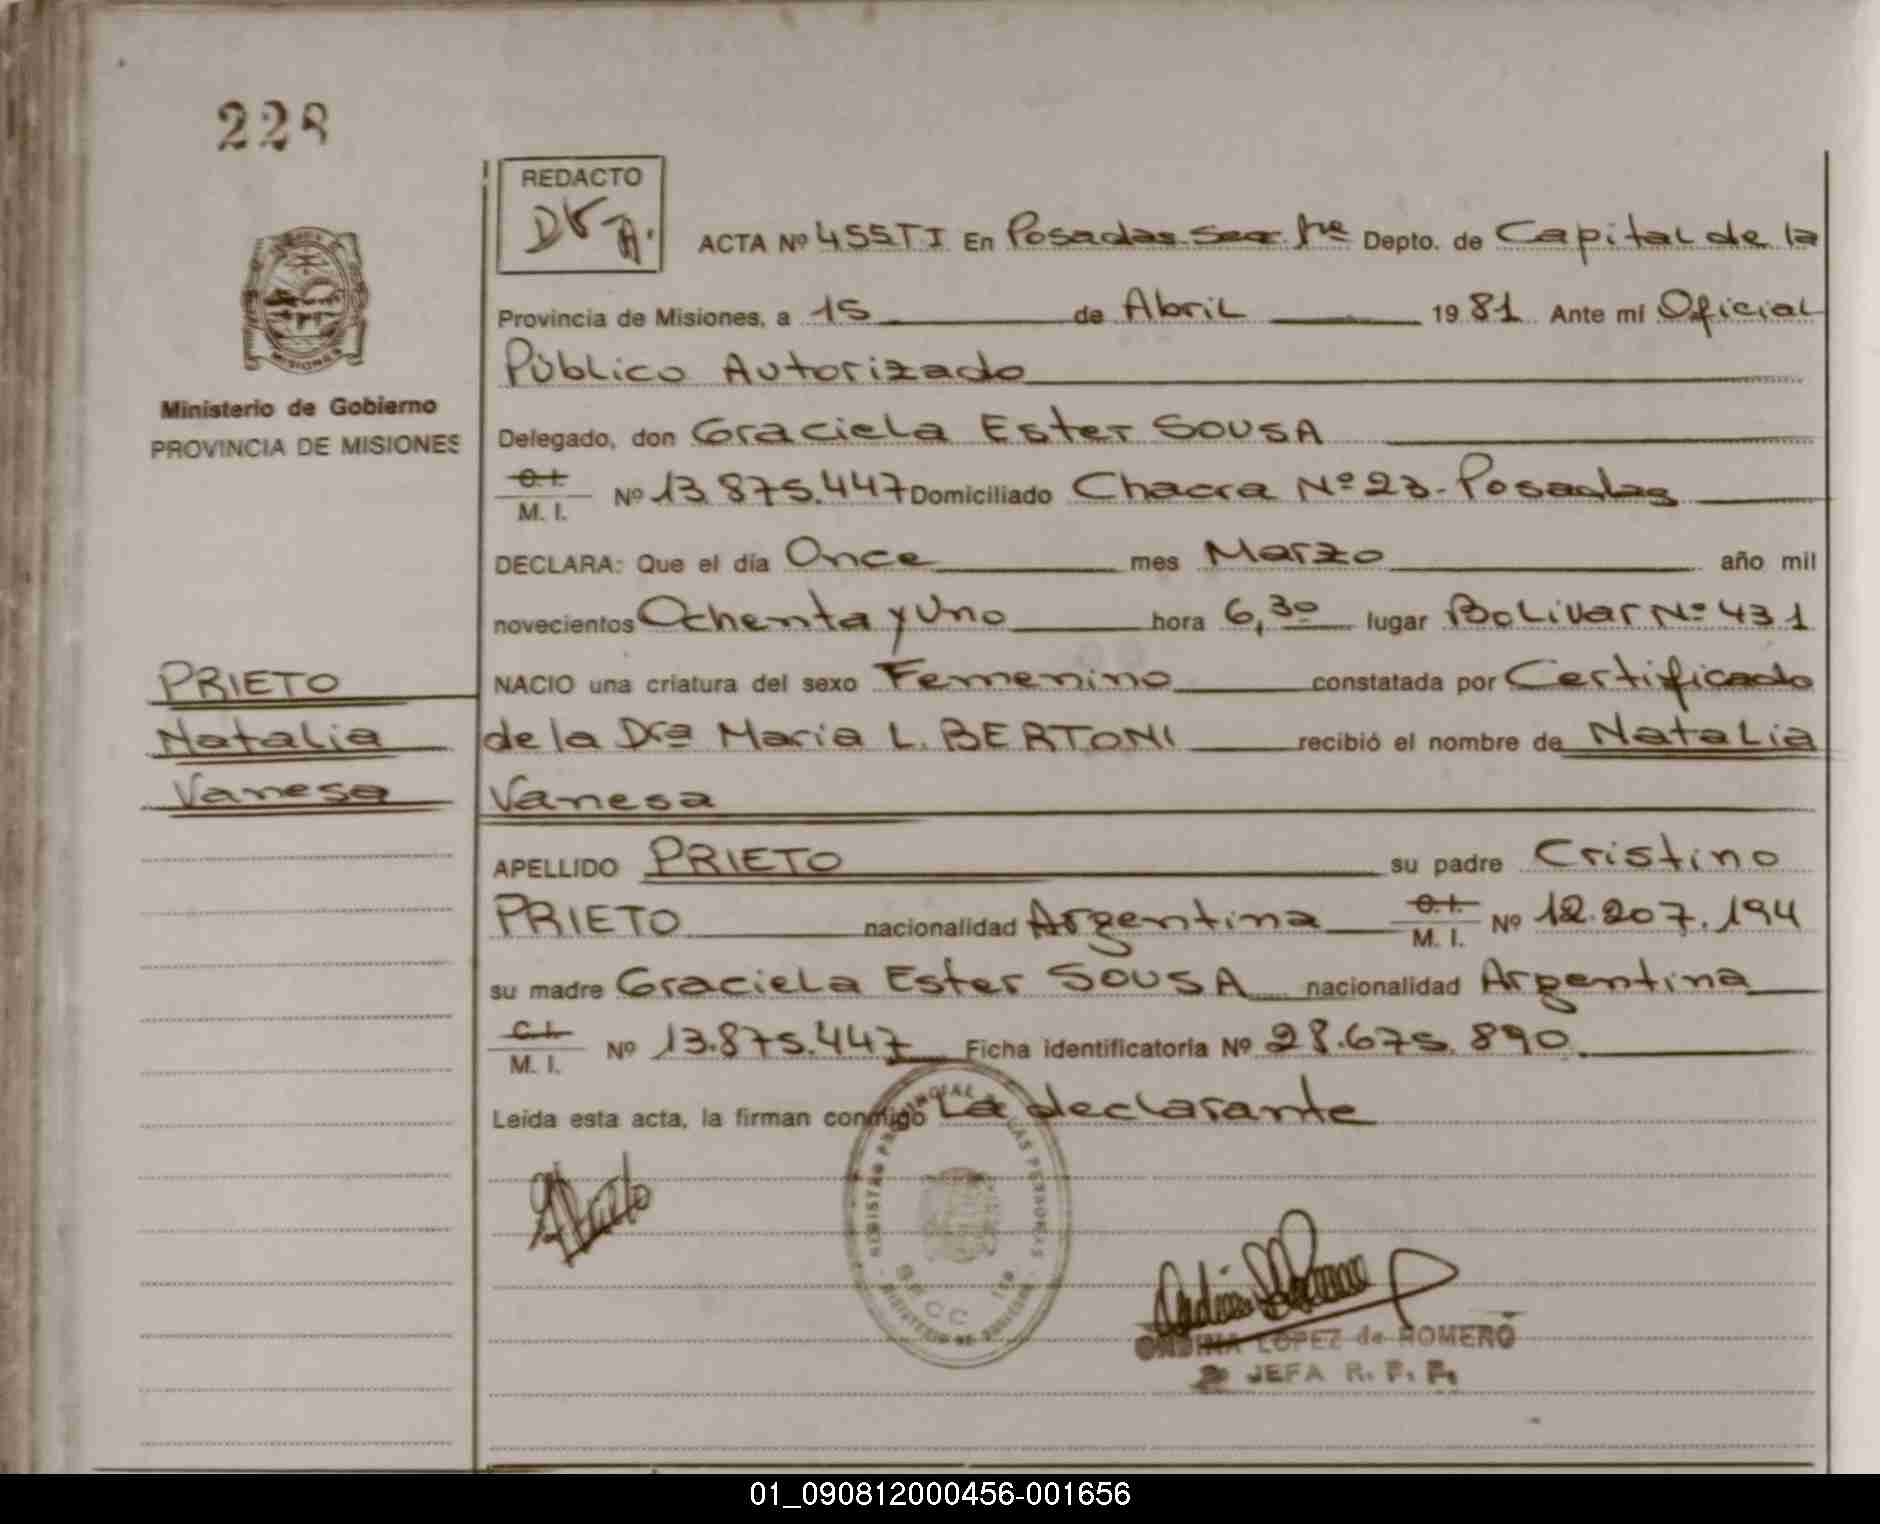 228
REDACTO
ACTA Nº 455TI En Posadas Secc. 1ra Depto. de Capital de la
Provincia de Misiones, a 15 de Abril 1981 Ante mí Oficial
Público Autorizado
Ministerio de Gobierno
PROVINCIA DE MISIONES
Delegado, don Graciela Ester SOUSA
C.I.
M. I. Nº 13.875.447 Domiciliado Chacra Nº 23-Posadas
DECLARA: Que el día Once mes Marzo año mil
novecientos Ochenta y Uno hora 6,30 lugar Bolivar Nº 431
PRIETO
Natalia
Vanesa
NACIO una criatura del sexo Femenino constatada por Certificado
de la Dra Maria L. BERTONI recibió el nombre de Natalia
Vanesa
APELLIDO PRIETO su padre Cristino
PRIETO nacionalidad Argentina C.I. M. I. Nº 12.207.194
su madre Graciela Ester SOUSA nacionalidad Argentina
C.I.
M. I. Nº 13.875.447 Ficha identificatoria Nº 28.675.890
Leída esta acta, la firman conmigo La declarante
REGISTRO PROVINCIAL LAS PERSONAS
ONDINA LOPEZ de ROMERO
JEFA R. P. P.
01_090812000456-001656